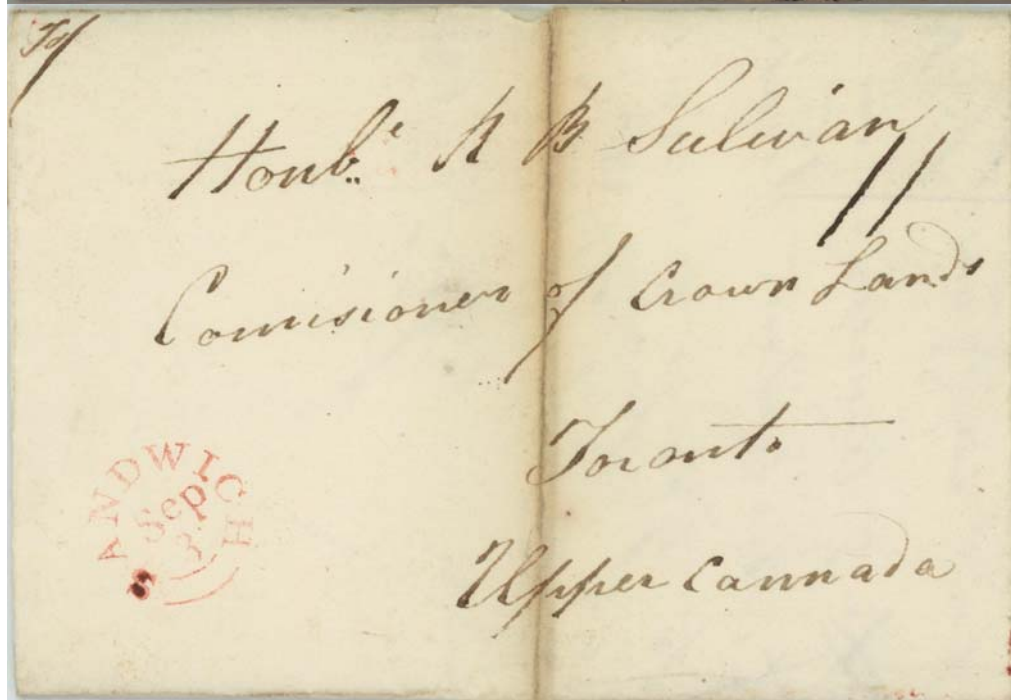 Honb.e R B Sulivan
Comisioner of Crown Lands
Toronto
Upper Cannada
SANDWICH
Sep
3